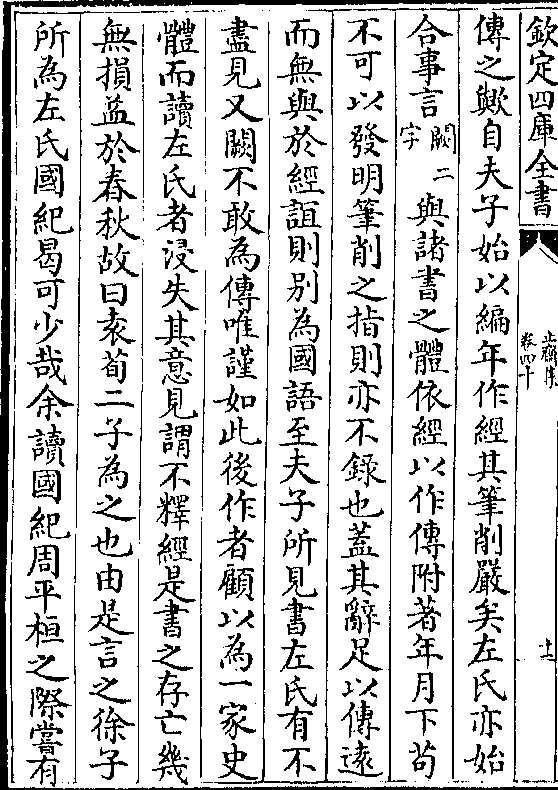 欽定四庫全書
止齋集
卷四十
十一
傳之歟自夫子始以編年作經其筆削嚴矣左氏亦始
合事言闕二字與諸書之體依經以作傳附著年月下苟
不可以發明筆削之指則亦不錄也蓋其辭足以傳遠
而無與於經誼則别為國語至夫子所見書左氏有不
盡見又闕不敢為傳唯謹如此後作者顧以為一家史
體而讀左氏者浸失其意見謂不釋經是書之存亡幾
無損益於春秋故曰袁荀二子為之也由是言之徐子
所為左氏國紀曷可少哉余讀國紀周平桓之際嘗有